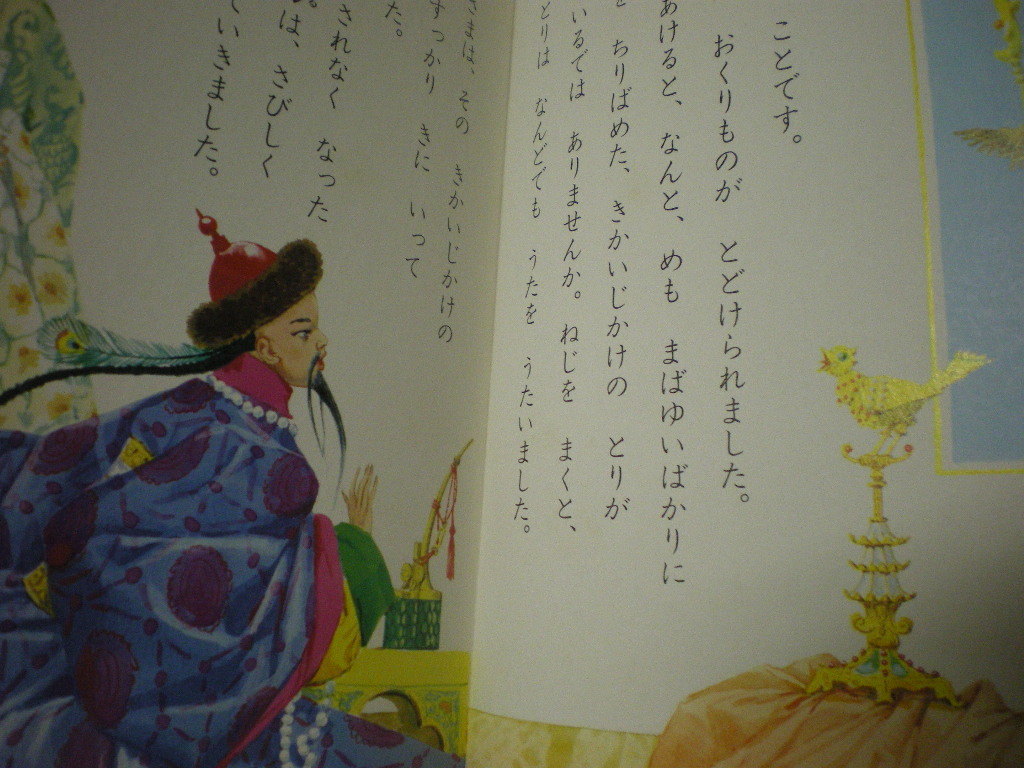 ことです。
おくりものが とどけられました。
あけると、なんと、めも まばゆいばかりに
ちりばめた、きかいじかけの とりが
いるでは ありませんか。ねじを まくと、
とりは なんどでも うたを うたいました。
さまは、その きかいじかけの
すっかり きに いって
た。
されなく なった
は、さびしく
ていきました。